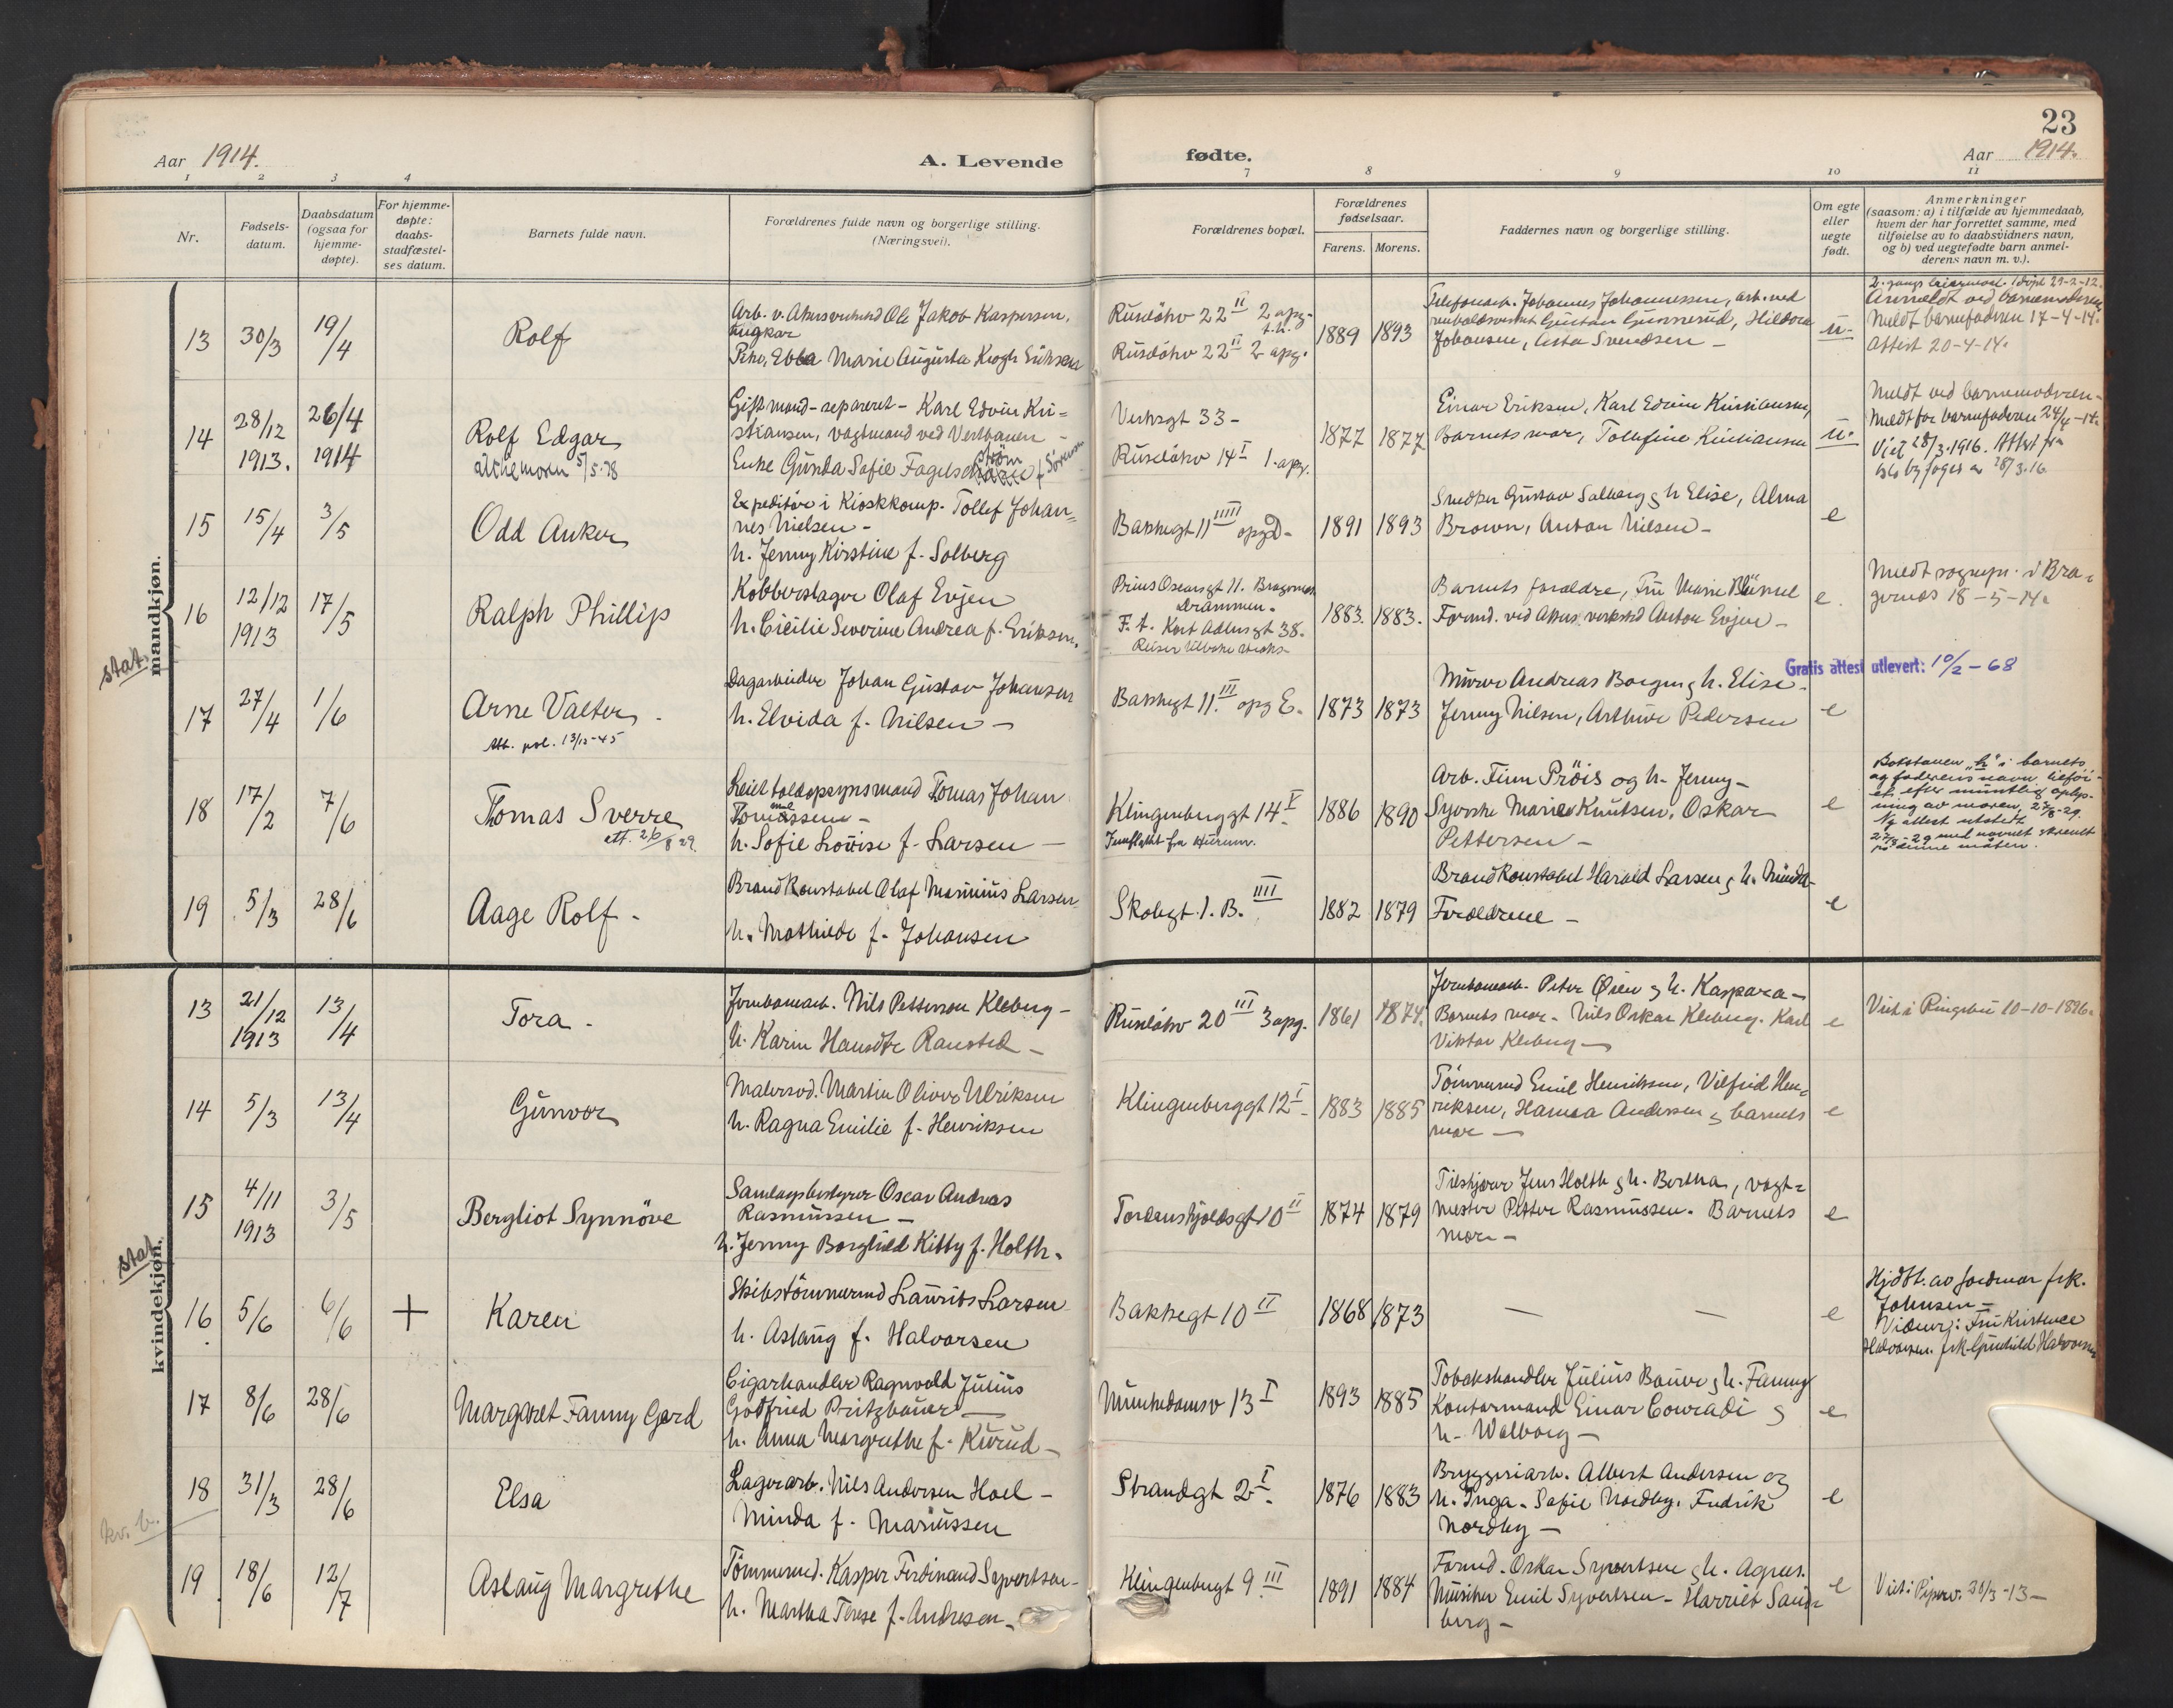 23
Aar 1914.
A. Levende
fødte.
Aar 1914.
1 2 3 4 7 8 9 10 11
Nr.
Fødsels-
datum.
Daabsdatum
(ogsaa for
hjemme-
døpte).
For hjemme-
døpte:
daabs-
stadfæstel-
ses datum.
Barnets fulde navn.
Forældrenes fulde navn og borgerlige stilling.
(Næringsvei).
Forældrenes bopæl.
Forældrenes
fødselsaar.
Farens. Morens.
Faddernes navn og borgerlige stilling.
Om egte
eller
uegte
født.
Anmerkninger
(saasom: a) i tilfælde av hjemmedaab,
hvem der har forrettet samme, med
tilføielse av to daabsvidners navn,
og b) ved uegtefødte barn anmel-
derens navn m. v.).
mandkjøn.
stat.
13 30/3 19/4
Rolf
Arb. v. Akersverksted Ole Jakob Kaspersen,
ungkar
Pike, Ebba Marie Augusta Krogh Eriksen
Ruseløkv 22 II 2 opg.
t.h.
Ruseløkv 22 II 2 opg.
1889 1893
Telefonarb. Johannes Johannessen, arb. ved
Gustav Gunnerud, Hildora
Johansen, Asta Svendsen -
u.
Anmeldt ved barnemoderen
Meldt barnefaderen 17-4-14.
Attest 20-4-14.
14 28/12 1913. 26/4 1914
Rolf Edgar
5/5.78
Gift mand - separeret - Karl Edvin Kri=
stiansen, vagtmand ved Vestbanen -
Enke Gunda Sofie Fagelström f. Sörensen
Verksgt 33 -
Ruseløkv 14 I 1. opg.
1877 1877
Einar Eriksen, Karl Edvin Kristiansen,
Barnets mor, Tolefine Kristiansen
u.
Meldt ved barnemoderen -
Meldt for barnefaderen 24/4-14.
Viet 28/3.1916. Attest fra
byfoged av 28/3.16.
15 15/4 3/5
Odd Anker
Expeditør i Kioskkomp. Tollef Johan=
nes Nielsen -
h. Jenny Kirstine f. Solberg
Bakkegt 11 IIII opg D -
1891 1893
Snedker Gustav Solberg & h Elise, Alma
Brown, Anton Nilsen -
e
16 12/12 1913 17/5
Ralph Phillip
Kobberslager Olaf Evjen
h. Cicilie Severine Andrea f. Eriksen.
Prins Oscarsgt 11. Bragernes
Drammen.
F. t. Kort Adlersgt 38.
1883. 1883.
Barnets forældre, Fru Marie Blümel
Formd. ved Akers verksted Anton Evjen -
e.
Meldt sognepr. i Bra=
gernes 18-5-14.
17 27/4 1/6
Arne Valter -
Att. pol. 13/12-45
Dagarbeider Johan Gustav Johansen
h. Elvida f. Nilsen -
Bakkegt 11 III opg E.
1873 1873
Murer Andreas Borgen & h. Elise -
Jenny Nilsen, Arthur Pedersen
e
Gratis attest utlevert: 10/2-68
18 17/2 7/6
Thomas Sverre
att. 26/8 29.
toldopsynsmand Tomas Johan
Thomassen -
h. Sofie Lovise f. Larsen -
Klingenberggt 14 I
Indflyttet fra Hurum.
1886 1890
Arb. Finn Pröis og h. Jenny -
Syerske Marie Knutsen, Oskar
Pettersen -
e
Bokstaven "h" i barnets
og faderens navn tilføi-
et efter muntlig oplys-
ning av moren, 27/8-29.
Ny attest utstedt
27/8-29 med navnet skrevet
på denne måten.
19 5/3 28/6
Aage Rolf -
Brandkonstabel Olaf Marinius Larsen
h. Mathilde f. Johansen
Skolegt. 1. B. IIII
1882 1879
Brandkonstabel Harald Larsen & h. Minda -
Forældrene -
e
kvindekjøn.
stat.
13 21/12 1913 13/4
Tora -
Jernbanearb. Nils Petterson Kleberg -
h. Karin Hansdtr Ransted -
Ruseløkv 20 III 3 opg.
1861 1874.
Jernbanearb. Peter Øien & h. Kaspara -
Barnets mor - Nils Oskar Kleberg. Karl
Viktor Kleberg -
e
Viet i Ringebu 10-10-1896.
14 5/3 13/4
Gunvor
Malersvd. Martin Oliver Ulriksen
h. Ragna Emilie f. Henriksen
Klingenberggt 12 I -
1883 1885
Tömmermd Emil Henriksen, Vilfrid Hen=
riksen, Hanna Andersen & barnets
mor -
e
15 4/11 1913 3/5
Bergliot Synnöve
Samlagsbestyrer Oscar Andreas
Rasmussen -
h. Jenny Borghild Kitty f. Holth.
Tordenskjoldsgt 10 II
1874 1879
Jens Holth & h. Bertha, vagt=
mester Petter Rasmussen. Barnets
mor -
e
16 5/6 6/6 +
Karen
Skibstömmermd Laurits Larsen
h. Aslaug f. Halvorsen
Bakkegt 10 II
1868 1873
— —
e
Hjdbt. av jordmor frk.
Johnsen -
Vidner: Fru Kristence
Halvorsen. frk. Gunhild Halvorsen
17 8/6 28/6
Margaret Fanny Gerd
Cigarhandler Ragnvald Julius
Godtfried Pritzbauer -
h. Anna Margrethe f. Kurud -
Munkedamsv 13 I
1893 1885
Tobakshandler Julius Bauer & h. Fanny
Kontormand Einar Conradi &
h. Walborg -
e
kv. b.
18 31/3 28/6
Elsa
Lagerarb. Nils Andersen Hoel -
Minda f. Mariussen
Strandgt 2 I.
1876 1883
Bryggeriarb. Albert Andersen og
h. Inga. Sofie Nordby. Fredrik
Nordby -
e
19 18/6 12/7
Aslaug Margrethe
Tömmermd. Kasper Ferdinand Syvertsen -
h. Martha Terese f. Andresen -
Klingenbergt 9 III
1891 1884
Formd. Oskar Syvertsen & h. Agnes.
Musiker Emil Syvertsen - Harriet Sand=
berg -
e
Viet i Piperv. 30/3-13 -